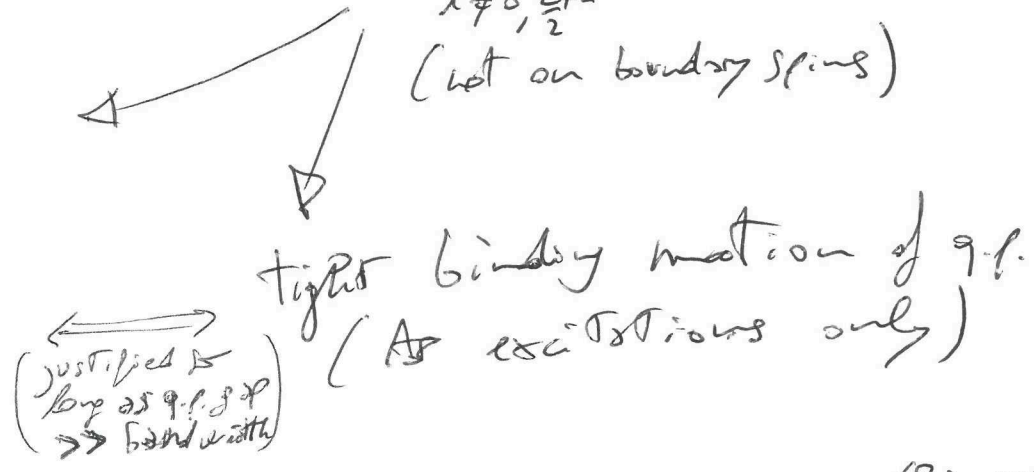 (not on boundary spins)
tight binding motion of q.p.
(As excitations only)
(justified as
long as q.p. gap
>> bandwidth)